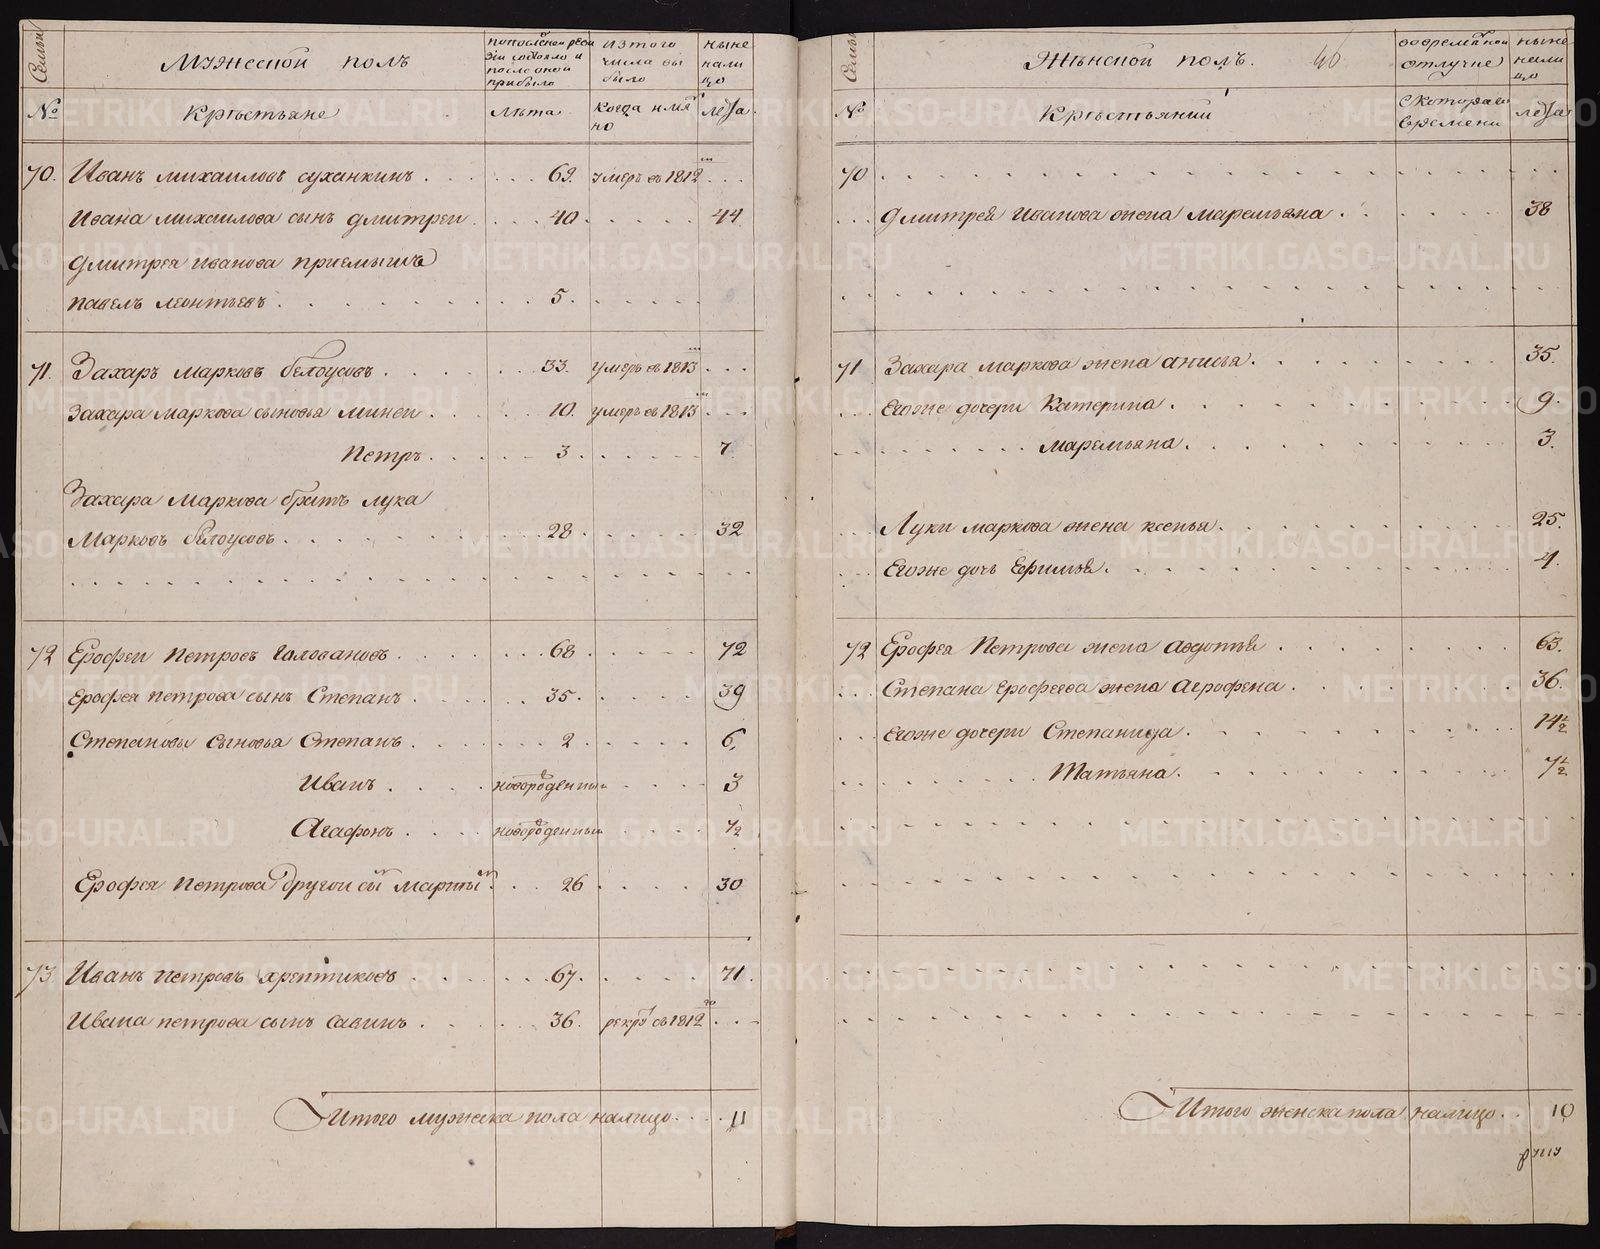 Семьи
Мужеской полъ
по последней реви
зiи состояло и
после оной
прибыло
из того
числа вы
было
ныне
нали
цо
№
Крестьяне
Лѣта
Когда имян
но
лета
70. Иванъ михаиловъ суханкинъ 69. умеръ въ 1812м
Ивана михаилова сынъ дмитреи 40 44
дмитрея иванова приемышъ
павелъ леонтьевъ 5
71. Захаръ марковъ белоусовъ 33. умеръ въ 1813м
Захара маркова сыновья минеи 10. умеръ въ 1813м
Петръ 3 7
Захара маркова братъ лука
Марковъ белоусовъ 28 32
72 Ерофеи Петровъ Галовановъ 68 72
Ерофея петрова сынъ Степанъ 35 39
Степановы сыновья Степанъ 2 6
Иванъ новорожденныи 3
Агафонъ новорожденныи 1/2
Ерофея Петрова другои сынъ Мартын 26 30
73. Иванъ петровъ хрептиковъ 67 71
Ивана петрова сынъ савинъ 36. рекрут въ 1812го
Итого мужеска пола налицо 11
Семьи
Женской полъ.
46
во временной
отлучке
ныне
нали
цо
№
Крестьянки
с котораго
времени
лета
70
Дмитрея иванова жена маремьяна 38
71 Захара маркова жена анисья 35.
Егоже дочери Катерина 9.
маремьяна 3.
Луки маркова жена ксенья 25.
Егоже дочь Ефимья 4.
72 Ерофея Петрова жена авдотья 63.
Степана Ерофеева жена Агрофена 36.
Егоже дочери Степанида 14 1/2
Татьяна 7 1/2
Итого женска пола налицо 10
METRIKI.GASO-URAL.RU